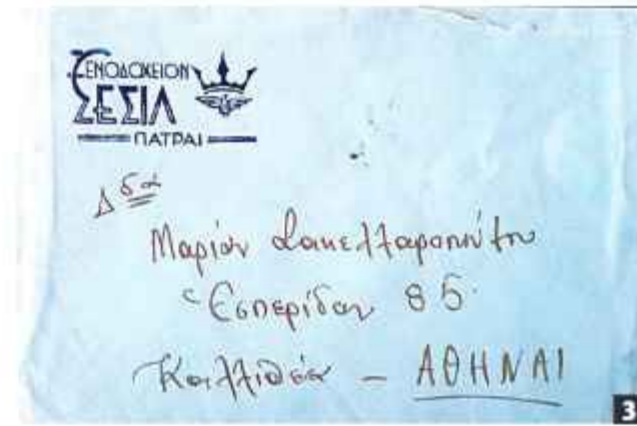 ΞΕΝΟΔΟΧΕΙΟΝ
ΣΕΣΙΛ
ΠΑΤΡΑΙ
Δδα
Μαρίαν Σακελλαροπούλου
Ἑσπερίδων 85
Καλλιθέα - ΑΘΗΝΑΙ
3